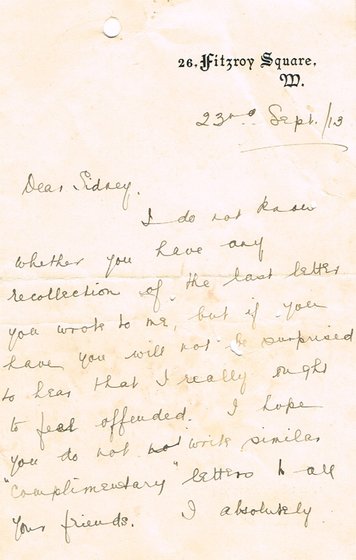 26, Fitzroy Square,
W.
23rd Sept./13
Dear Sidney.
I do not know
whether you have any
recollection of the last letter
you wrote to me, but if you
have you will not be surprised
to hear that I really ought
to feel offended. I hope
you do not write similar
"complimentary" letters to all
your friends. I absolutely